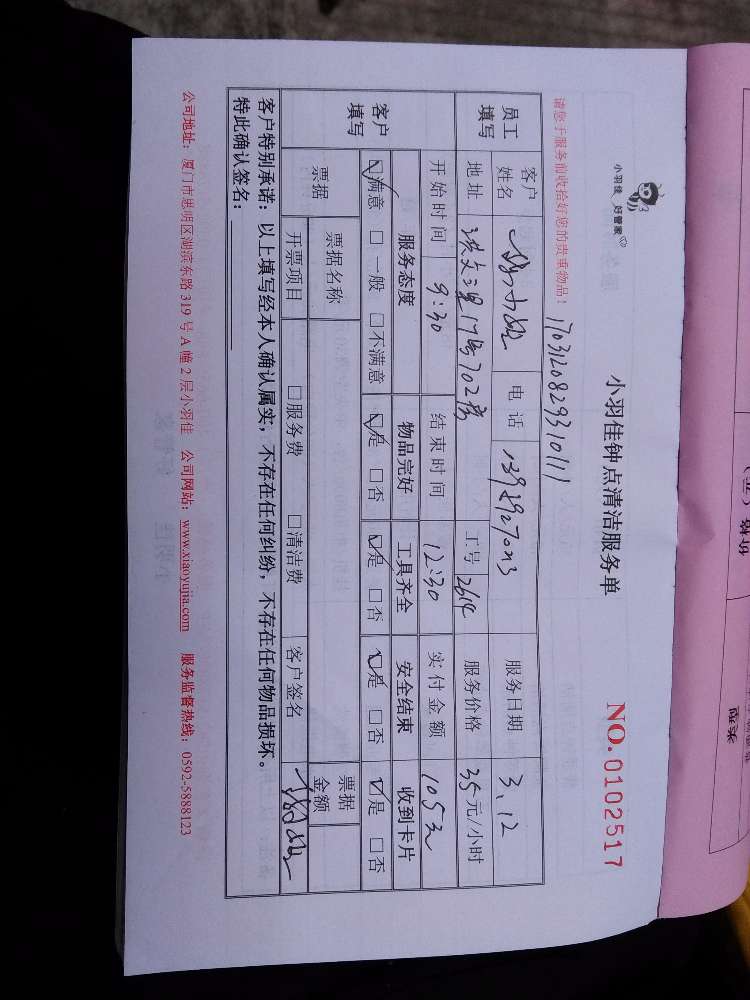 小羽佳 好管家
小羽佳钟点清洁服务单
NO. 0102517
请您于服务前收拾好您的贵重物品!
1703120829310111
员工填写 客户姓名 电话 服务日期 3.12
地址 洪文三里17号702 工号 2614 服务价格 35元/小时
客户填写 开始时间 9:30 结束时间 12:30 实付金额 105元
服务态度 物品完好 工具齐全 安全结束 收到卡片
☑满意 □一般 □不满意 ☑是 □否 ☑是 □否 ☑是 □否 ☑是 □否
票据 票据名称 票据金额
开票项目 □服务费 □清洁费 客户签名
客户特别承诺:以上填写经本人确认属实,不存在任何纠纷,不存在任何物品损坏。
特此确认签名:
公司地址:厦门市思明区湖滨东路 319 号 A 幢 2 层小羽佳 公司网站:www.xiaoyujia.com 服务监督热线:0592-5888123